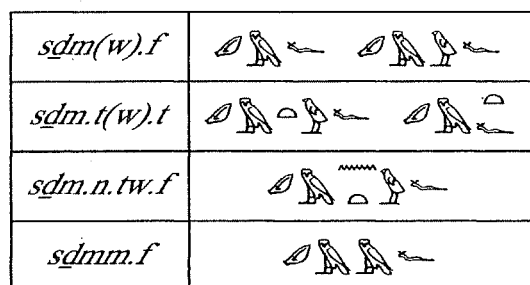 sḏm(w).f 𓄔𓅓𓆑 𓄔𓅓𓅱𓆑
sḏm.t(w).t 𓄔𓅓𓏏𓅱𓆑 𓄔𓅓𓏏𓆑
sḏm.n.tw.f 𓄔𓅓𓈖𓏏𓅱𓆑
sḏmm.f 𓄔𓅓𓅓𓆑